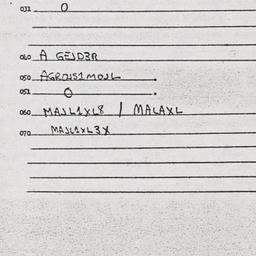 031 0
040 A GEJD3R
050 AGROUS1MOJL.
051 0.
060 MAJL1XL8 / MALAXL
070 MAJL1XL3X